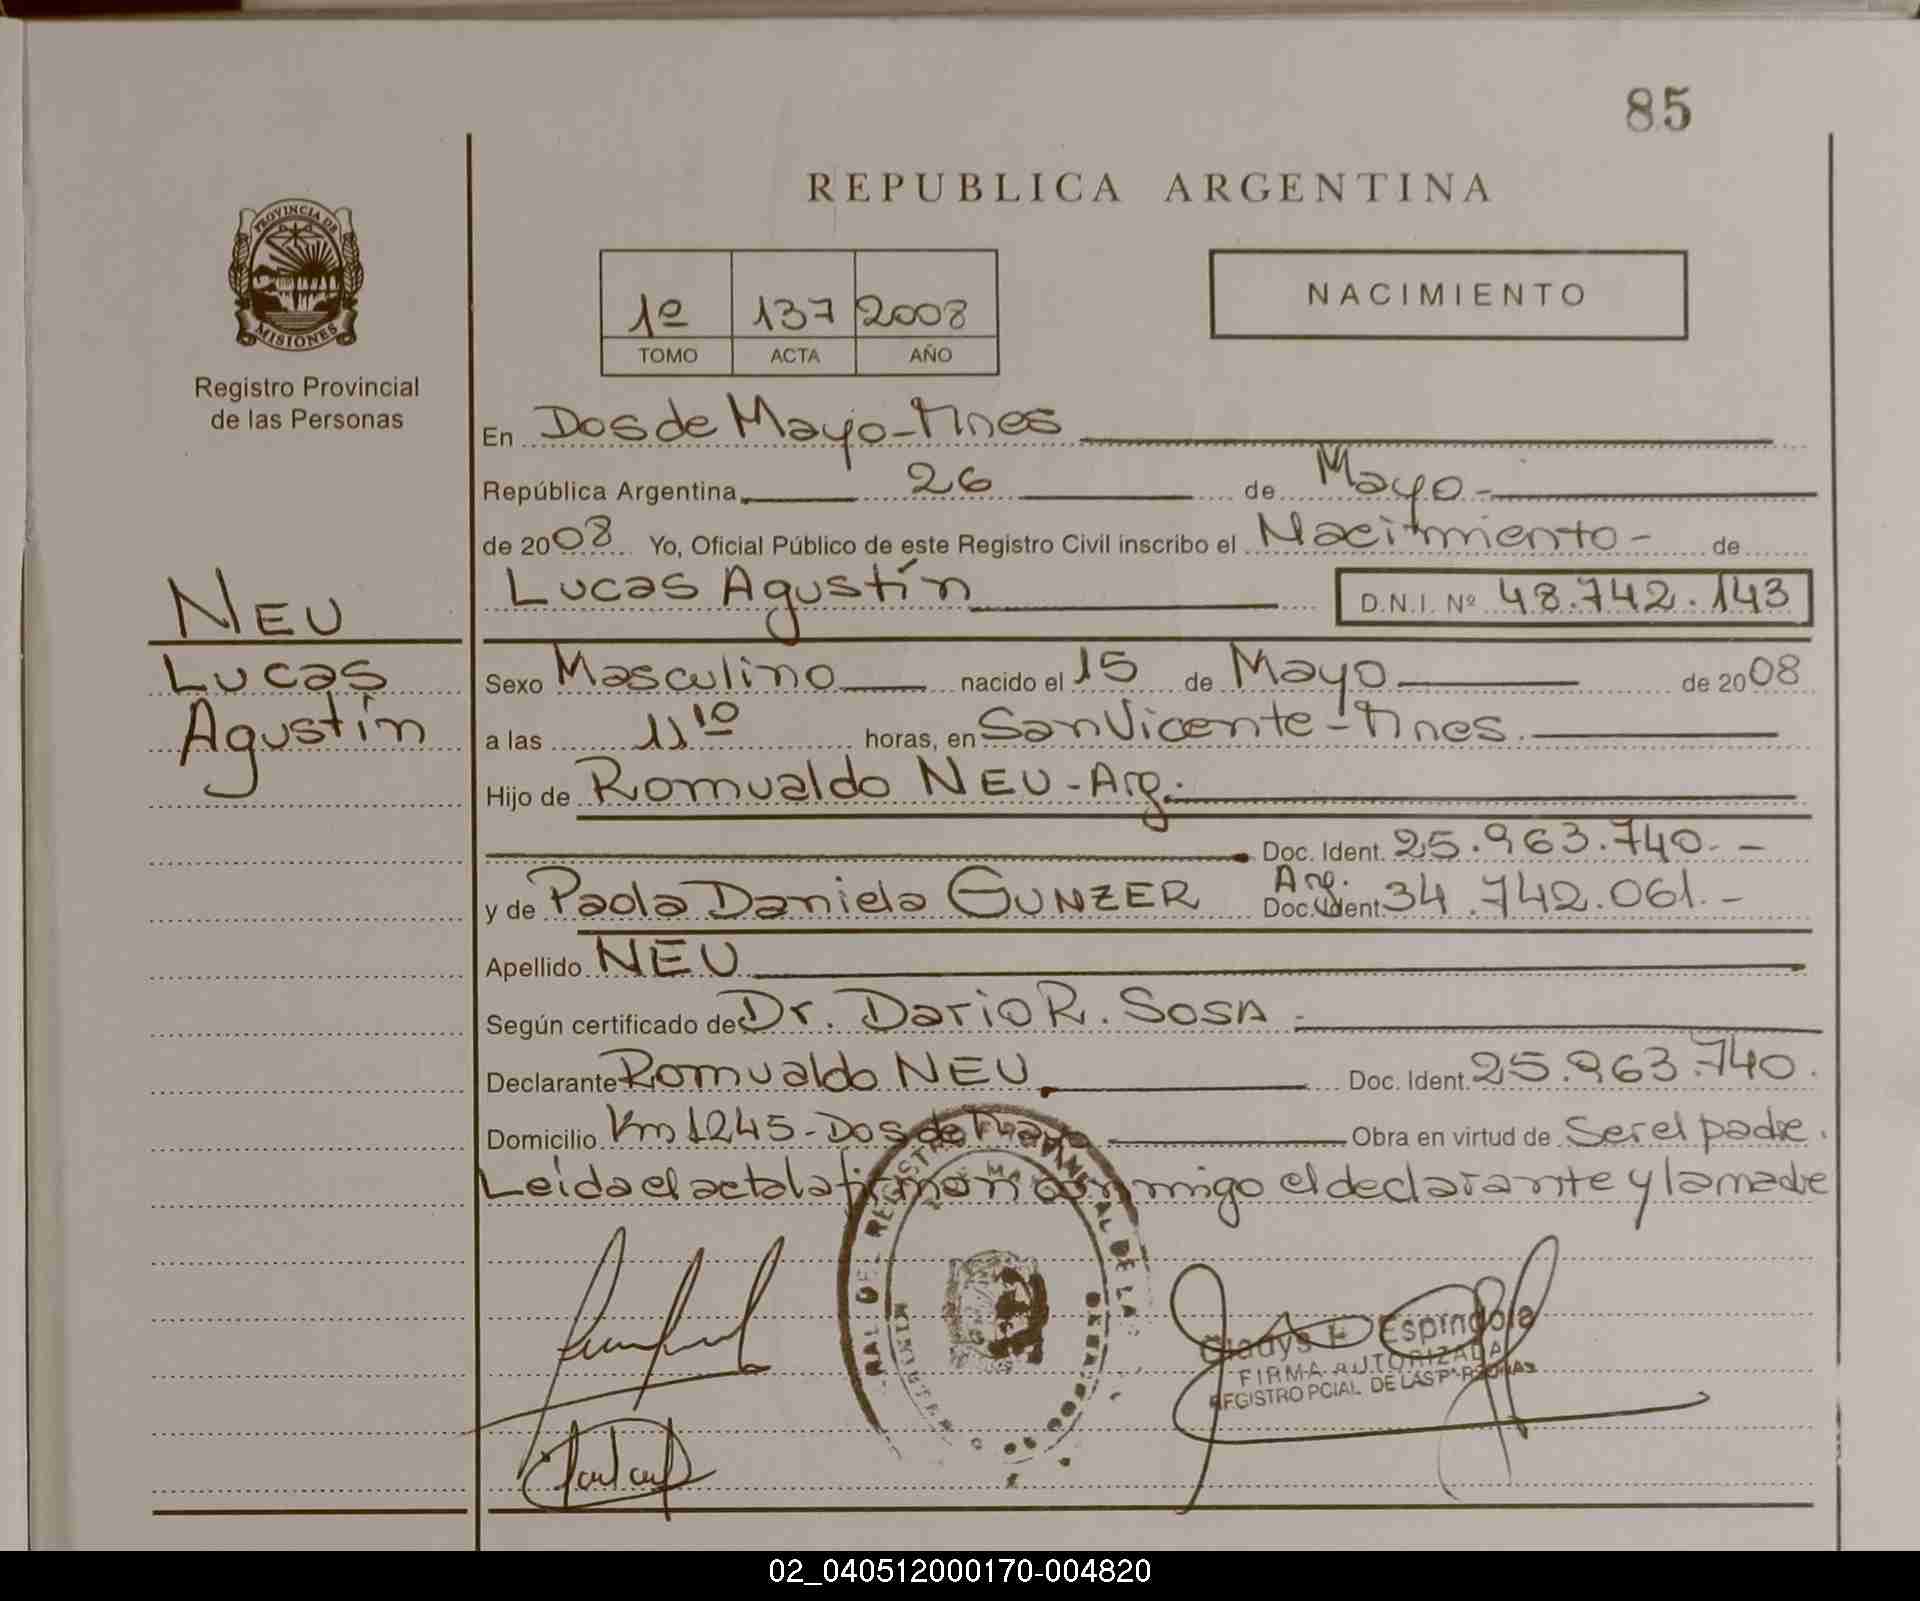 85
REPUBLICA ARGENTINA
PROVINCIA DE
MISIONES
Registro Provincial
de las Personas
1º 137 2008
TOMO ACTA AÑO
NACIMIENTO
En Dos de Mayo - Mnes
República Argentina, 26 de Mayo -
de 2008 Yo, Oficial Público de este Registro Civil inscribo el Nacimiento - de
Lucas Agustín D.N.I. Nº 48.742.143
NEU
Lucas
Agustín
Sexo Masculino nacido el 15 de Mayo de 2008
a las 11 10 horas, en San Vicente - Mnes.
Hijo de Romualdo NEU - Arg.
Doc. Ident. 25.963.740. -
y de Paola Daniela GUNZER Arg. Doc. Ident. 34.742.061. -
Apellido NEU
Según certificado de Dr. Dario R. SOSA -
Declarante Romualdo NEU. Doc. Ident. 25.963.740.
Domicilio Km 1245 - Dos de Mayo Obra en virtud de Ser el padre.
Leída el acta la firman conmigo el declarante y la madre
Gladys E Espindola
FIRMA AUTORIZADA
REGISTRO PCIAL DE LAS PERSONAS
02_040512000170-004820